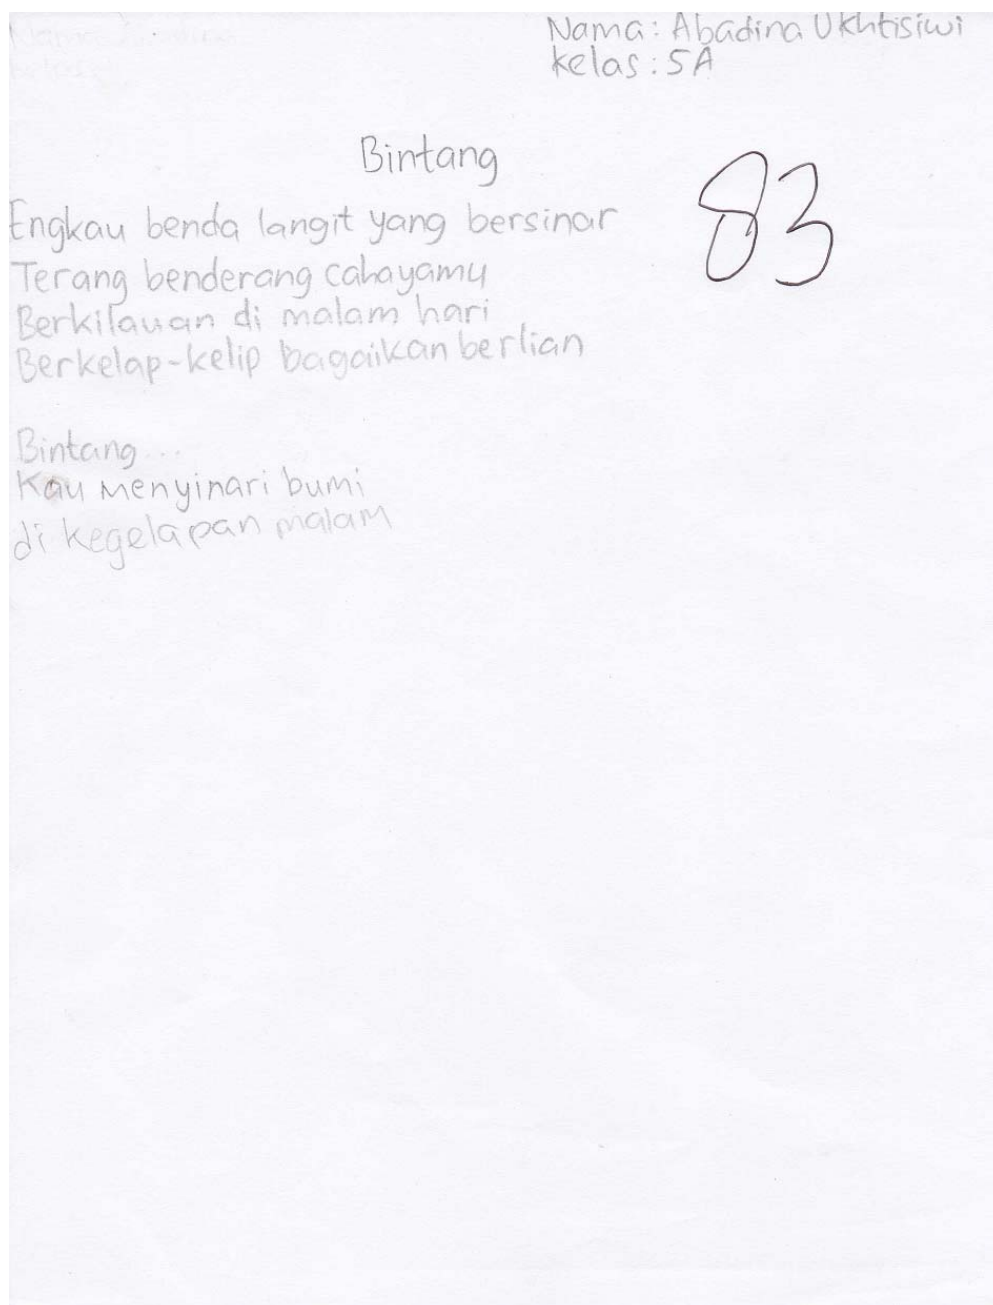 Nama: Abadina Ukhtisiwi
kelas: 5A
Bintang
83
Engkau benda langit yang bersinar
Terang benderang cahayamu
Berkilauan di malam hari
Berkelap-kelip bagaikan berlian
Bintang...
Kau menyinari bumi
di kegelapan malam